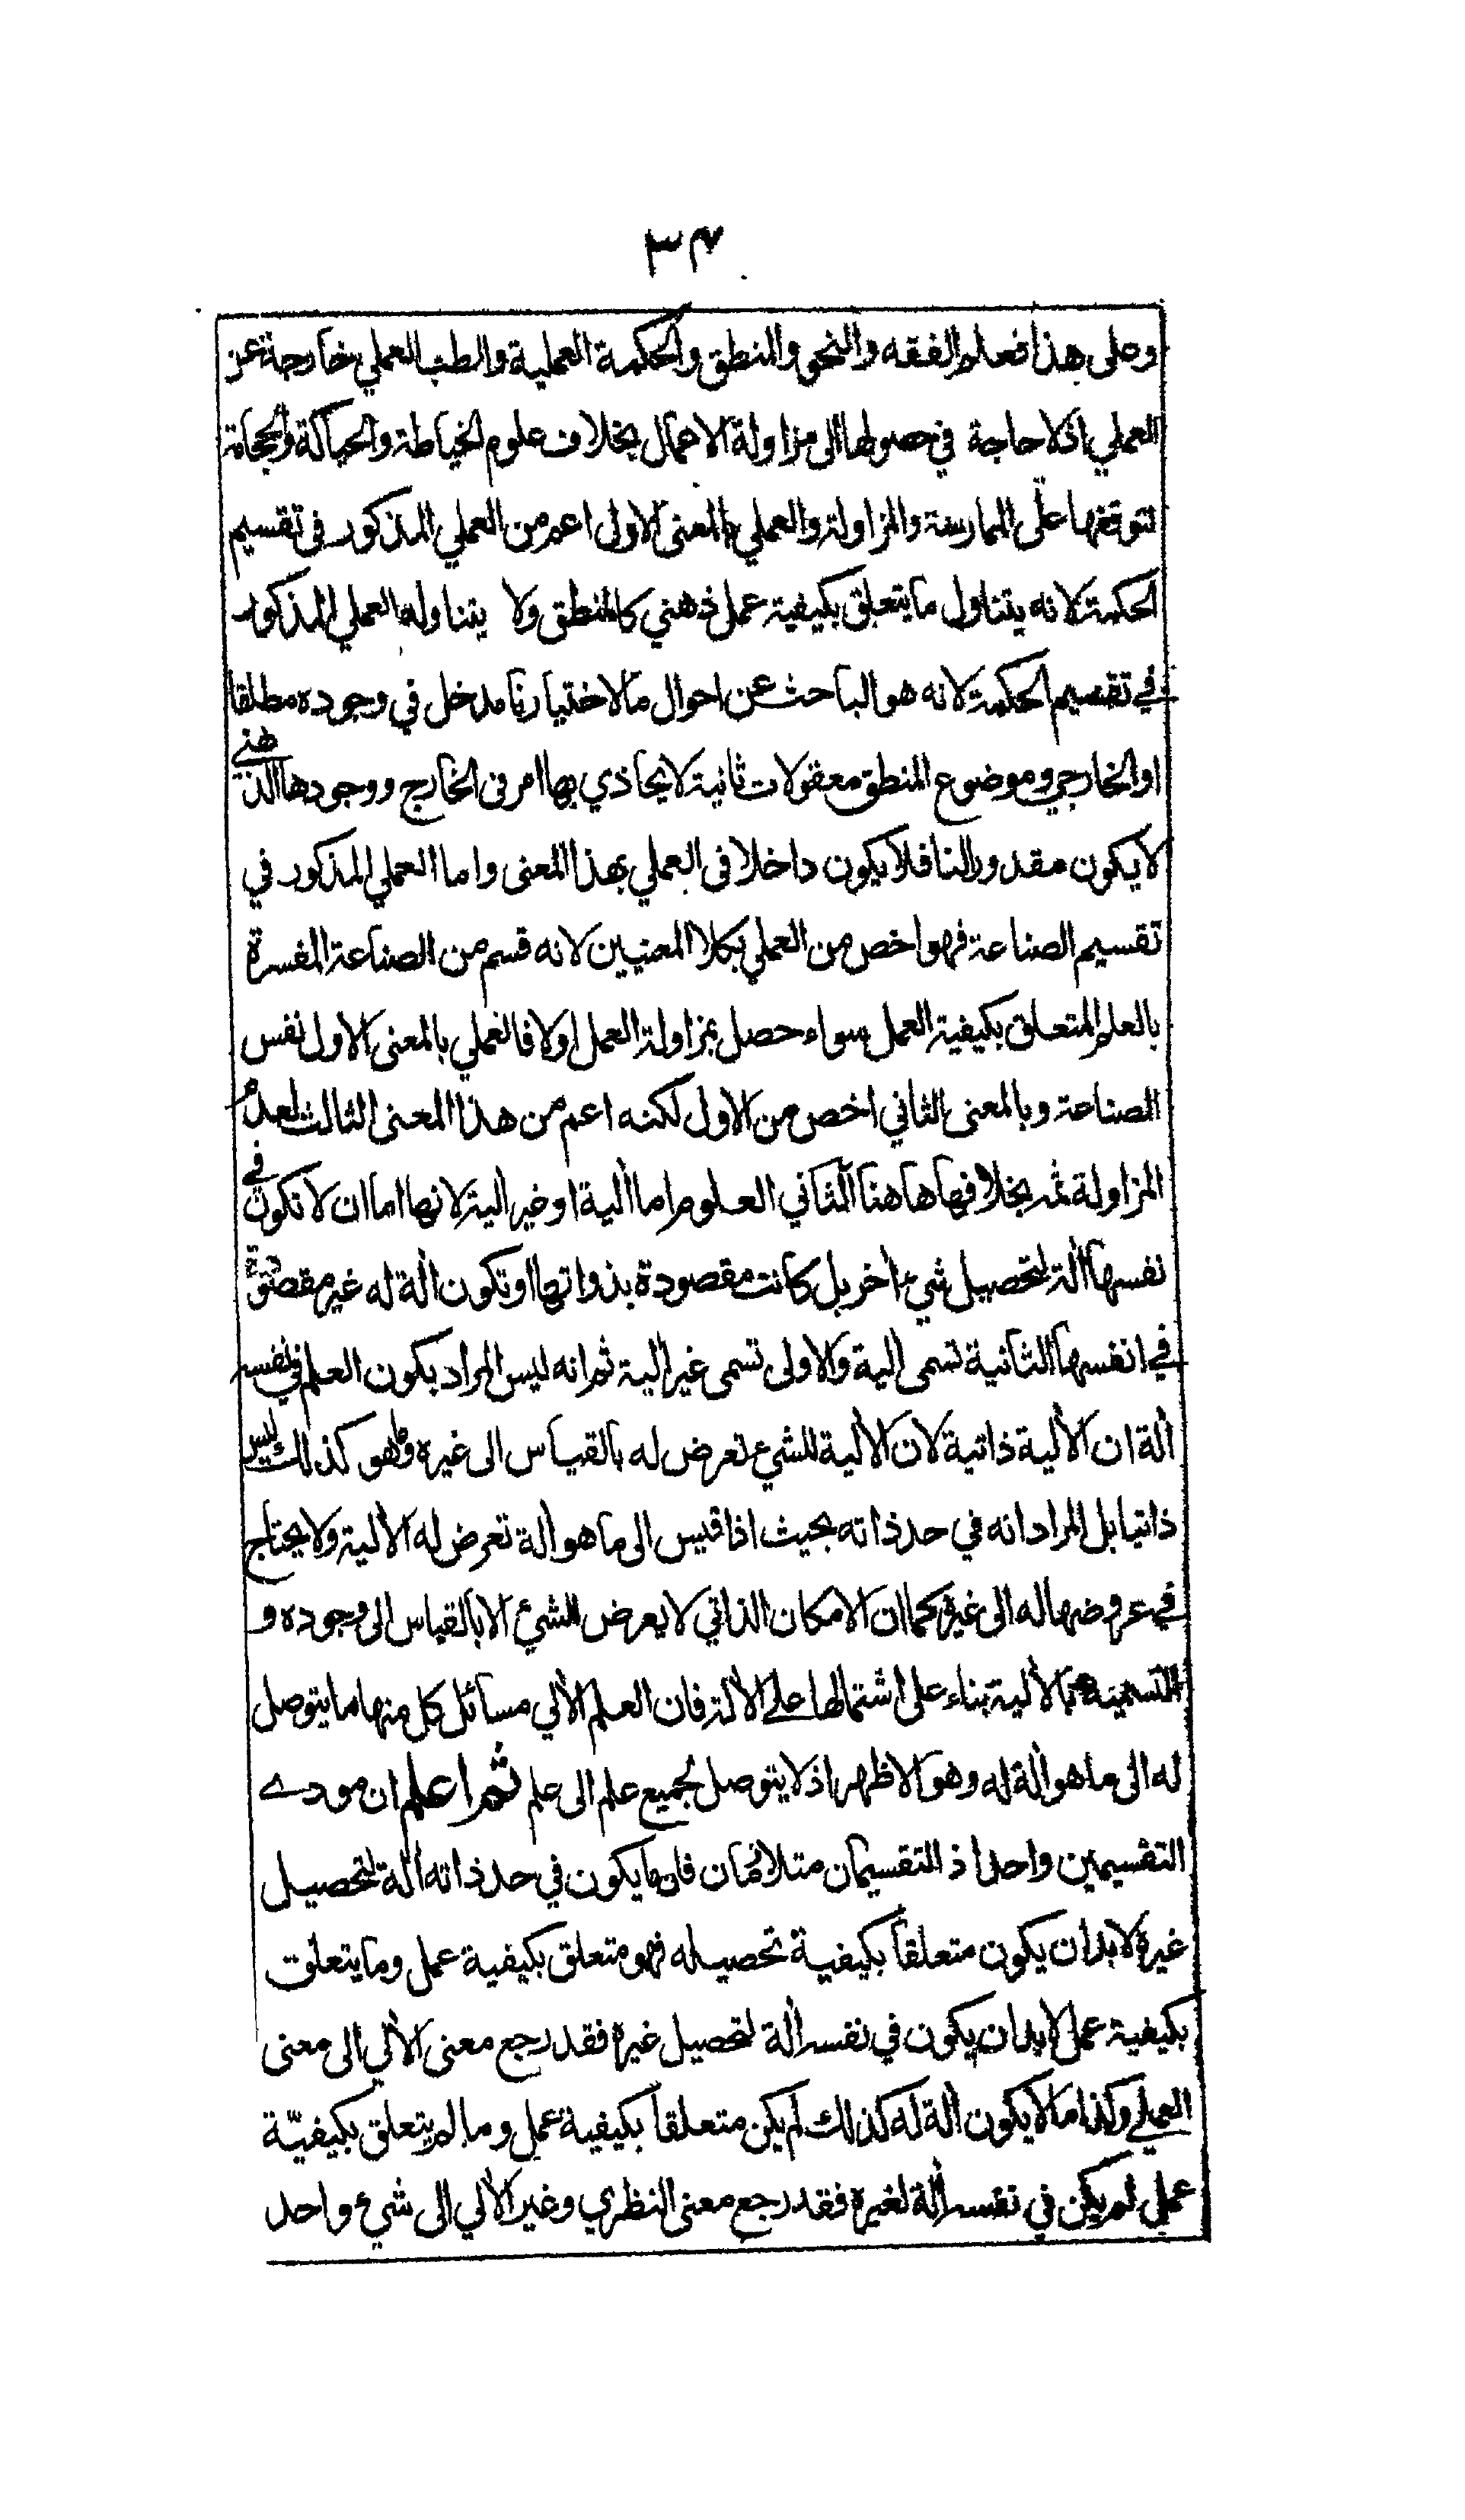 ٣٧
وعلى هذا فعلم الفقه والنحو والمنطق والحكمة العملية والطب العملي خارجة عن
العملي اذ لا حاجة في حصولها الى مزاولة الاعمال بخلاف علوم الخياطة والحياكة والحجامة
لتوقفها على الممارسة والمزاولة والعملي بالمعنى الاول اعم من العملي المذكور في تقسيم
الحكمة لانه يتناول ما يتعلق بكيفية عمل ذهني كالمنطق ولا يتناوله العملي المذكور
في تقسيم الحكمة لانه هو الباحث عن احوال ما لاختيارنا مدخل في وجوده مطلقا
او الخارجي وموضوع المنطق معقولات ثانية لا يحاذي بها امر في الخارج ووجودها الذهني
لا يكون مقدورا لنا فلا يكون داخلا في العملي بهذا المعنى واما العملي المذكور في
تقسيم الصناعة فهو اخص من العملي بكلا المعنيين لانه قسم من الصناعة المفسرة
بالعلم المتعلق بكيفية العمل سواء حصل بمزاولة العمل اولا فالعملي بالمعنى الاول نفس
الصناعة وبالمعنى الثاني اخص من الاول لكنه اعم من هذا المعنى الثالث لعدم
المزاولة ثمه بخلافها هاهنا الثاني العلوم اما الٰية او غير الية لانها اما ان لا تكون في
نفسها الة لتحصيل شيء اخر بل كانت مقصودة بذواتها او تكون الة له غير مقصودة
في انفسها الثانية تسمى الية والاولى تسمى غير الية ثم انه ليس المراد بكون العلم في نفسه
الة ان الالية ذاتية لان الالية للشيء تعرض له بالقياس الى غيره وما هو كذلك ليس
ذاتيا بل المراد انه في حد ذاته بحيث اذا قيس الى ما هو الة تعرض له الالية ولا يحتاج
في عروضها له الى غيره كما ان الامكان الذاتي لا يعرض للشيء الا بالقياس الى وجوده و
التسمية بالالية بناء على اشتمالها على الالة فان العلم الالي مسائل كل منها ما يتوصل
له الى ما هو الة له وهو الاظهر اذ لا يتوصل بجميع علم الى علم ثم اعلم ان مودے
التقسيمين واحد اذ التقسيمان متلازمان فان ما يكون في حد ذاته الة لتحصيل
غيره لا بد ان يكون متعلقا بكيفية تحصيله فهو متعلق بكيفية عمل وما يتعلق
بكيفية عمل لا بد ان يكون في نفسه الة لتحصيل غيره فقد رجع معنى الالي الى معنى
العملي وكذا ما لا يكون الة له كذلك لم يكن متعلقا بكيفية عمل وما لم يتعلق بكيفيّة
عمل لم يكن في نفسه الة لغيره فقد رجع معنى النظري وغير الالي الى شيء واحد